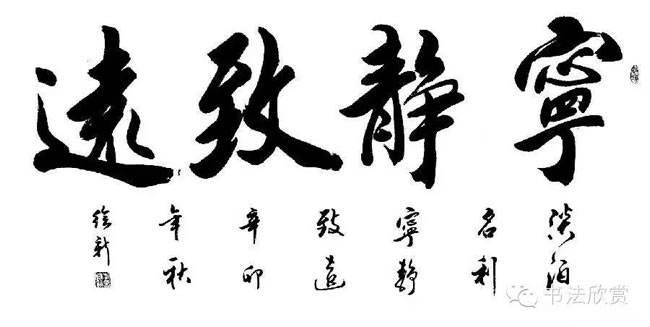 寧靜致遠
淡泊
名利
寧靜
致遠
辛卯
年秋
徐新
书法欣赏